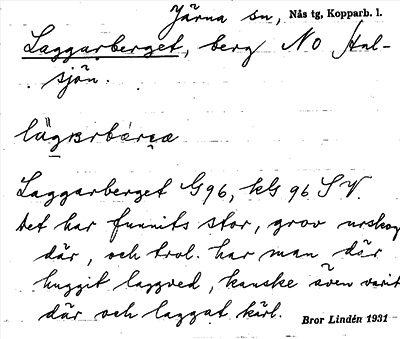 Järna sn, Nås tg, Kopparb. l.
Laggarberget, berg NO Hal-
sjön.
Laggarberget G96, kG 96 SV.
Det har funnits stor, grov urskog
där, och trol. har man där
huggit laggved, kanske även varit
där och laggat kärl.
Bror Lindén 1931